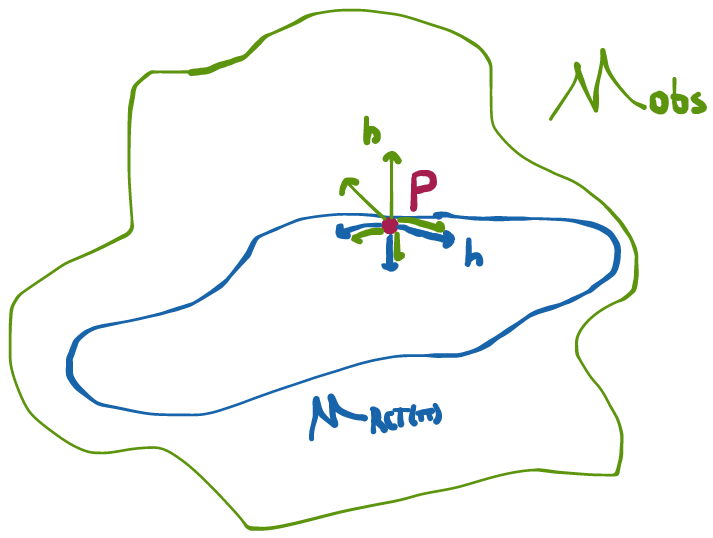 M obs
h
P
h
M RCT(π)